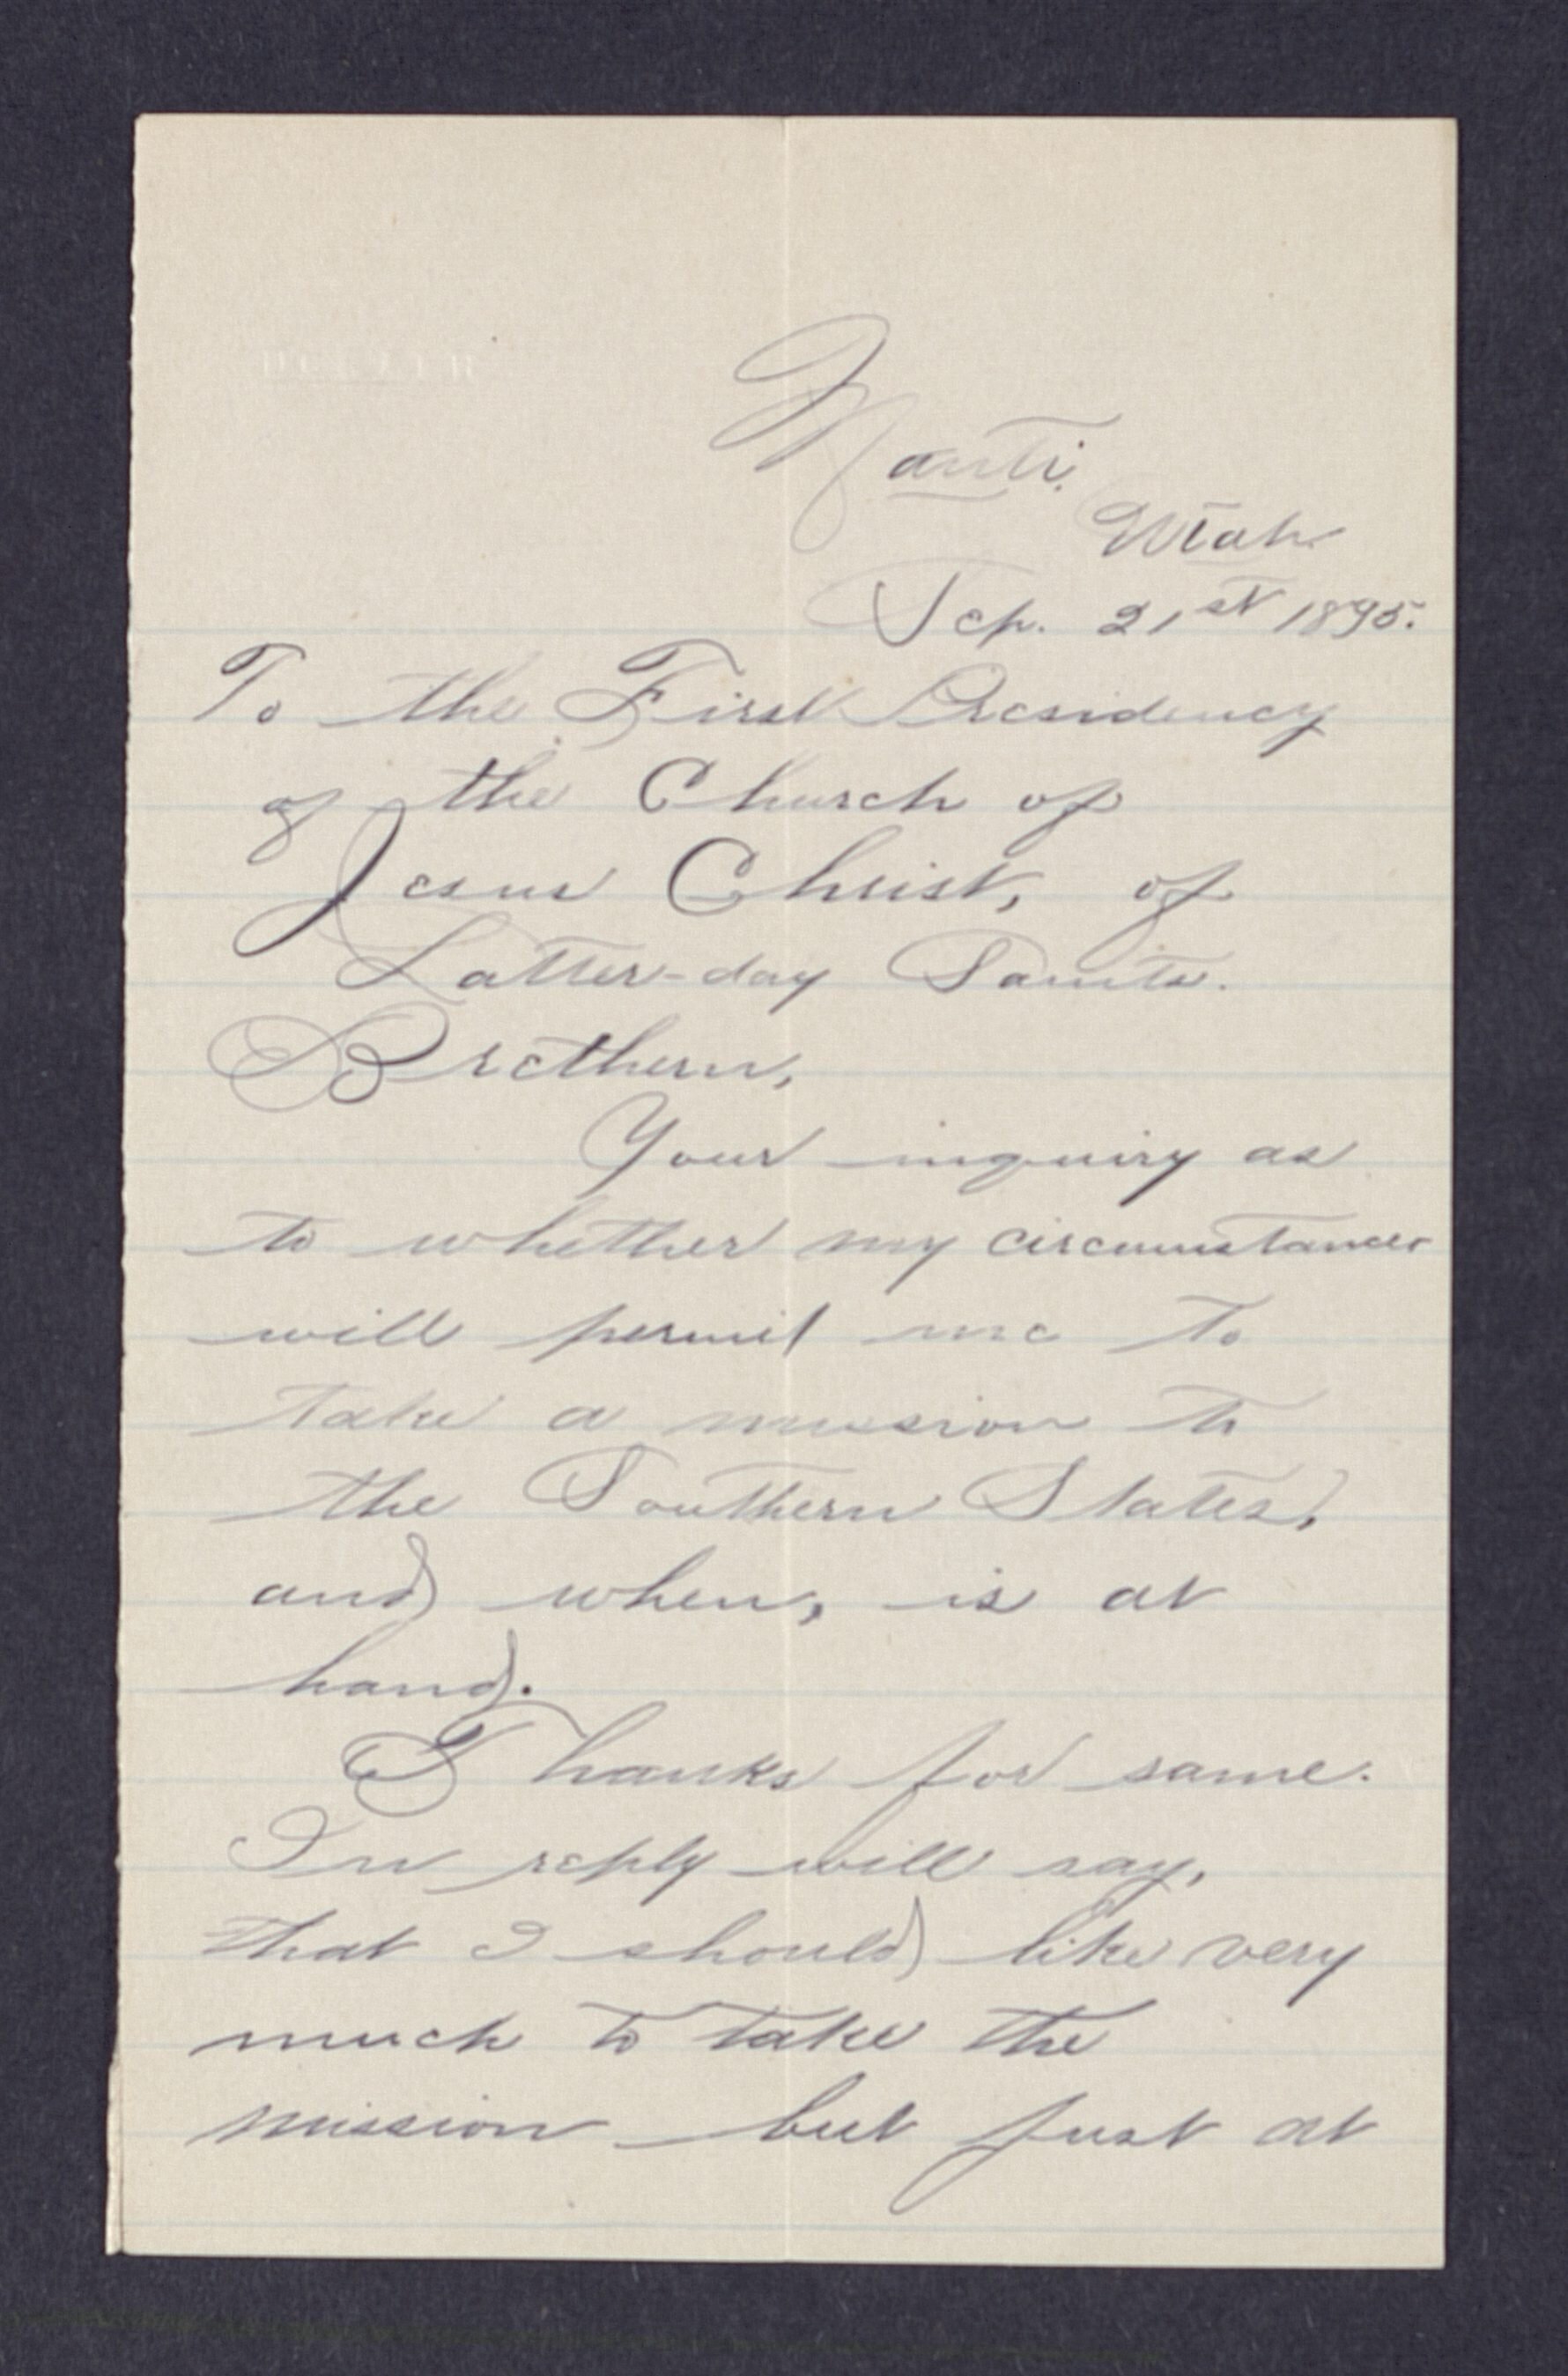 Manti.
Utah.
Sep. 21st 1895.
To the First Presidency
of the Church of
Jesus Christ, of
Latter-day Saints.
Brethern,
Your inquiry as
to whether my circumstances
will permit me to
take a mission to
the Southern States,
and when, is at
hand.
Thanks for same.
In reply will say,
that I should like very
much to take the
mission but just at